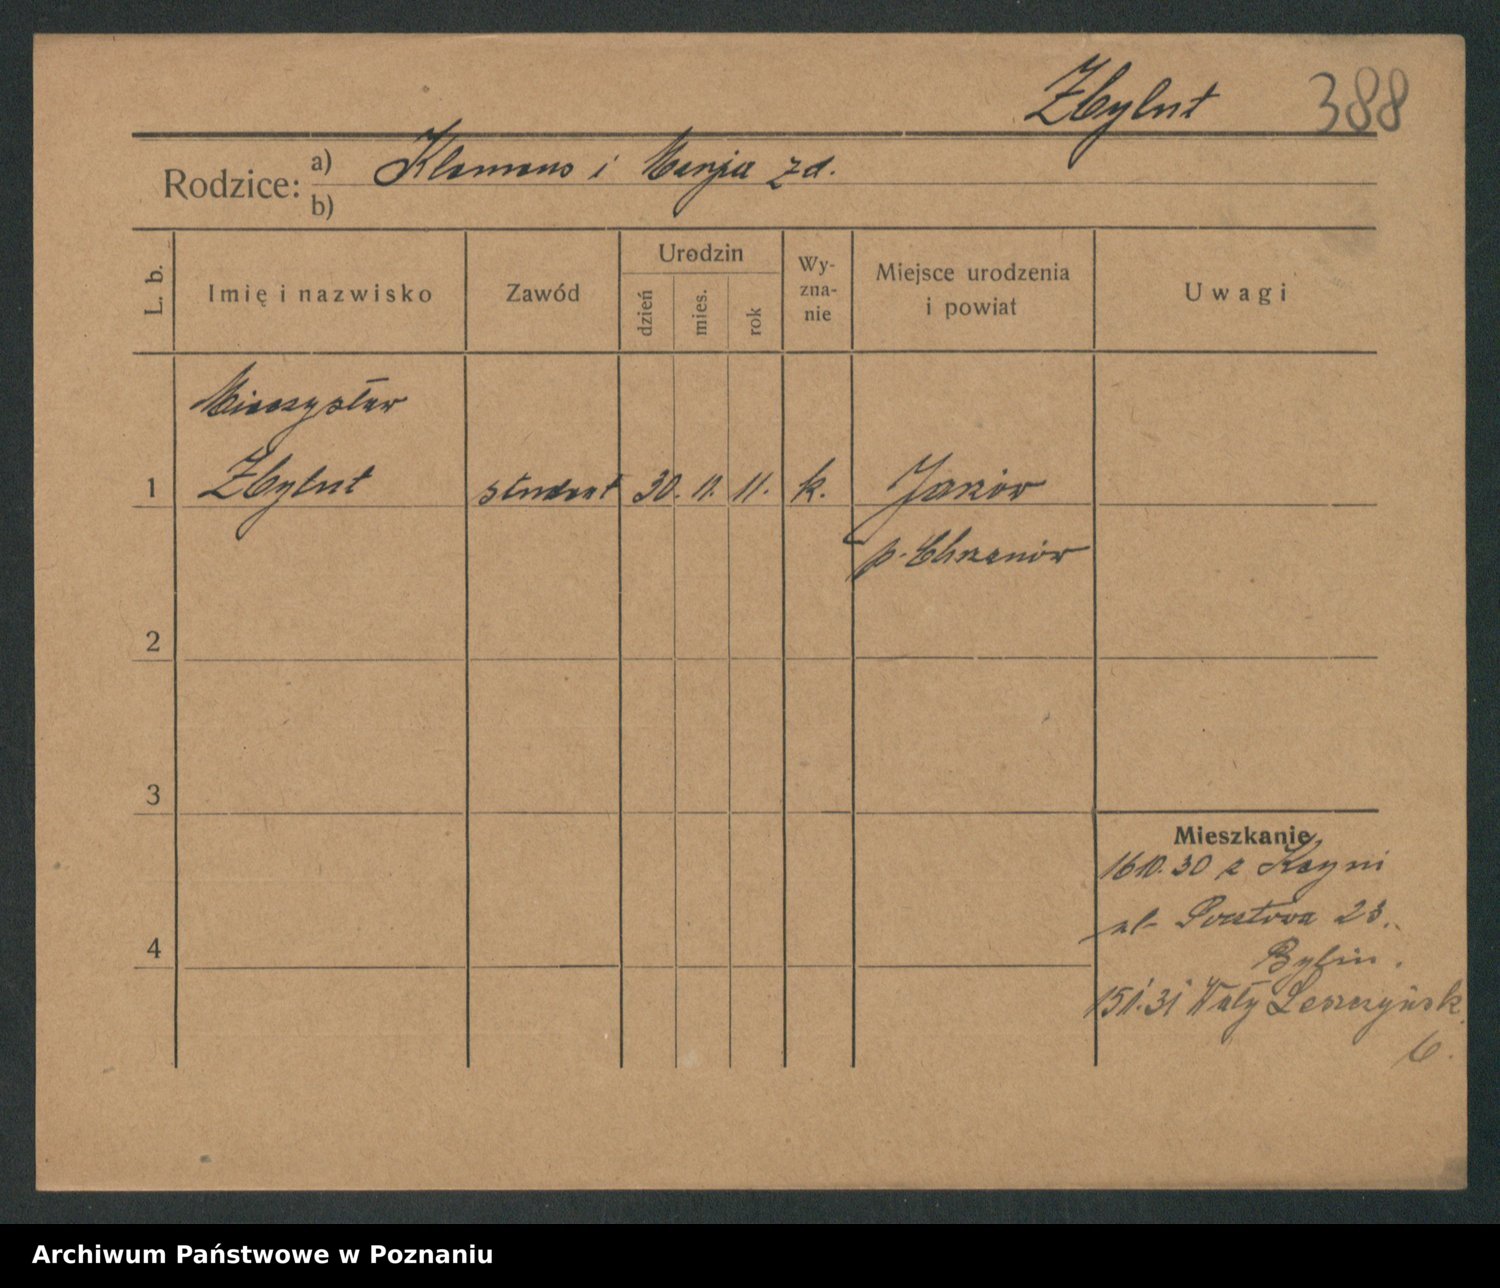 Zbylut 388
Rodzice: a) Klemens i Marja zd.
b)
L. b. Imię i nazwisko Zawód Urodzin dzień mies. rok Wyznanie Miejsce urodzenia i powiat Uwagi
Mieczysław
1 Zbylut student 30. 11. 11. k. Jaxów
p. Chrzanów
2
3
Mieszkanie
16 10. 30 z Kcyni
ul. Pocztowa 23.
4 Bylin.
15 1. 31 Wały Leszczyńsk.
6.
Archiwum Państwowe w Poznaniu